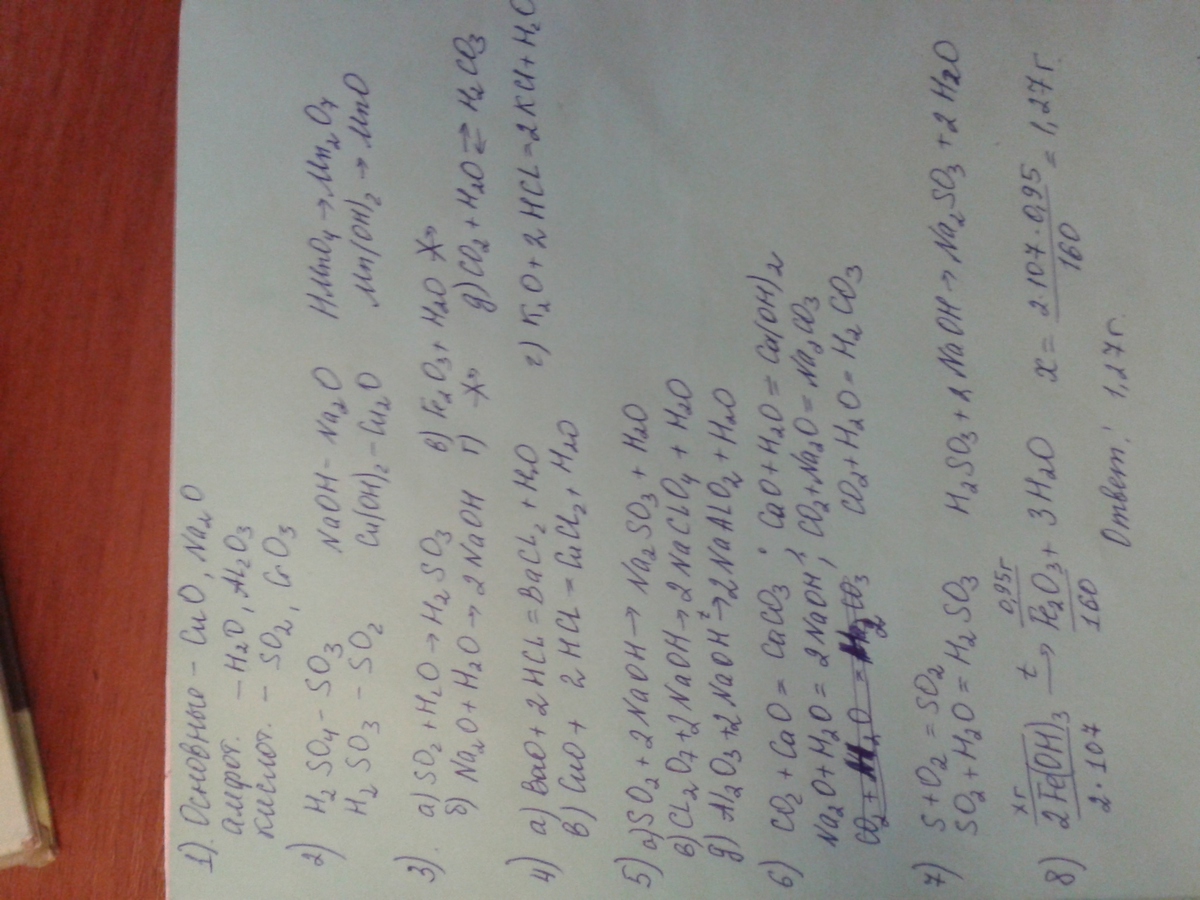 1). Основные – CuO, Na2O
амфот. – H2O, Al2O3
кислот. – SO2, CrO3
2) H2SO4 – SO3 NaOH – Na2O HMnO4 → Mn2O7
H2SO3 – SO2 Cu(OH)2 – Cu2O Mn(OH)2 → MnO
3). а) SO2 + H2O → H2SO3 в) Fe2O3 + H2O
б) Na2O + H2O → 2NaOH г) д) CO2 + H2O ⇄ H2CO3
4) а) BaO + 2HCl = BaCl2 + H2O г) K2O + 2HCl = 2KCl + H2O
в) CuO + 2HCl = CuCl2 + H2O
5) а) SO2 + 2NaOH → Na2SO3 + H2O
в) Cl2O7 + 2NaOH → 2NaClO4 + H2O
д) Al2O3 + 2NaOH t→ 2NaAlO2 + H2O
6) CO2 + CaO = CaCO3 ; CaO + H2O = Ca(OH)2
Na2O + H2O = 2NaOH ; CO2 + Na2O = Na2CO3
CO2 + H2O = H2CO3
7) S + O2 = SO2 H2SO3 + 2NaOH → Na2SO3 + 2H2O
SO2 + H2O = H2SO3
xг 0,95г
8) 2Fe(OH)3 t→ Fe2O3 + 3H2O x = 2·107·0,95 / 160 = 1,27г.
2·107 160
Ответ: 1,27г.